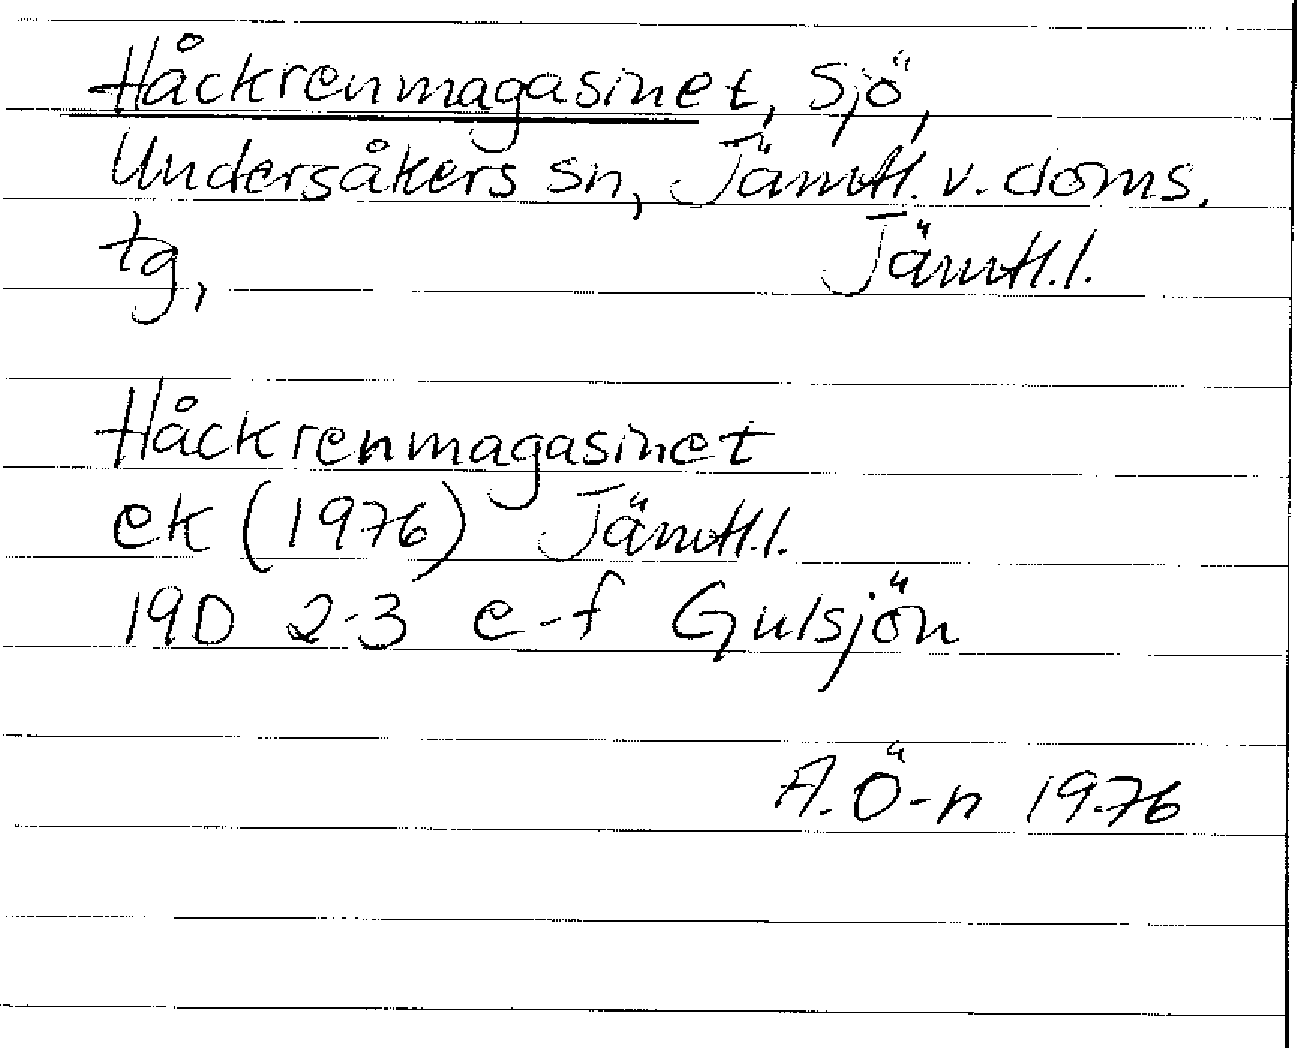 Håckrenmagasinet, Sjö,
Undersåkers sn, Jämtl. v. doms.
tg, Jämtl.l.
Håckrenmagasinet
ek (1976) Jämtl.l.
19D 2-3 e-f Gulsjön
A. Ö-n 1976